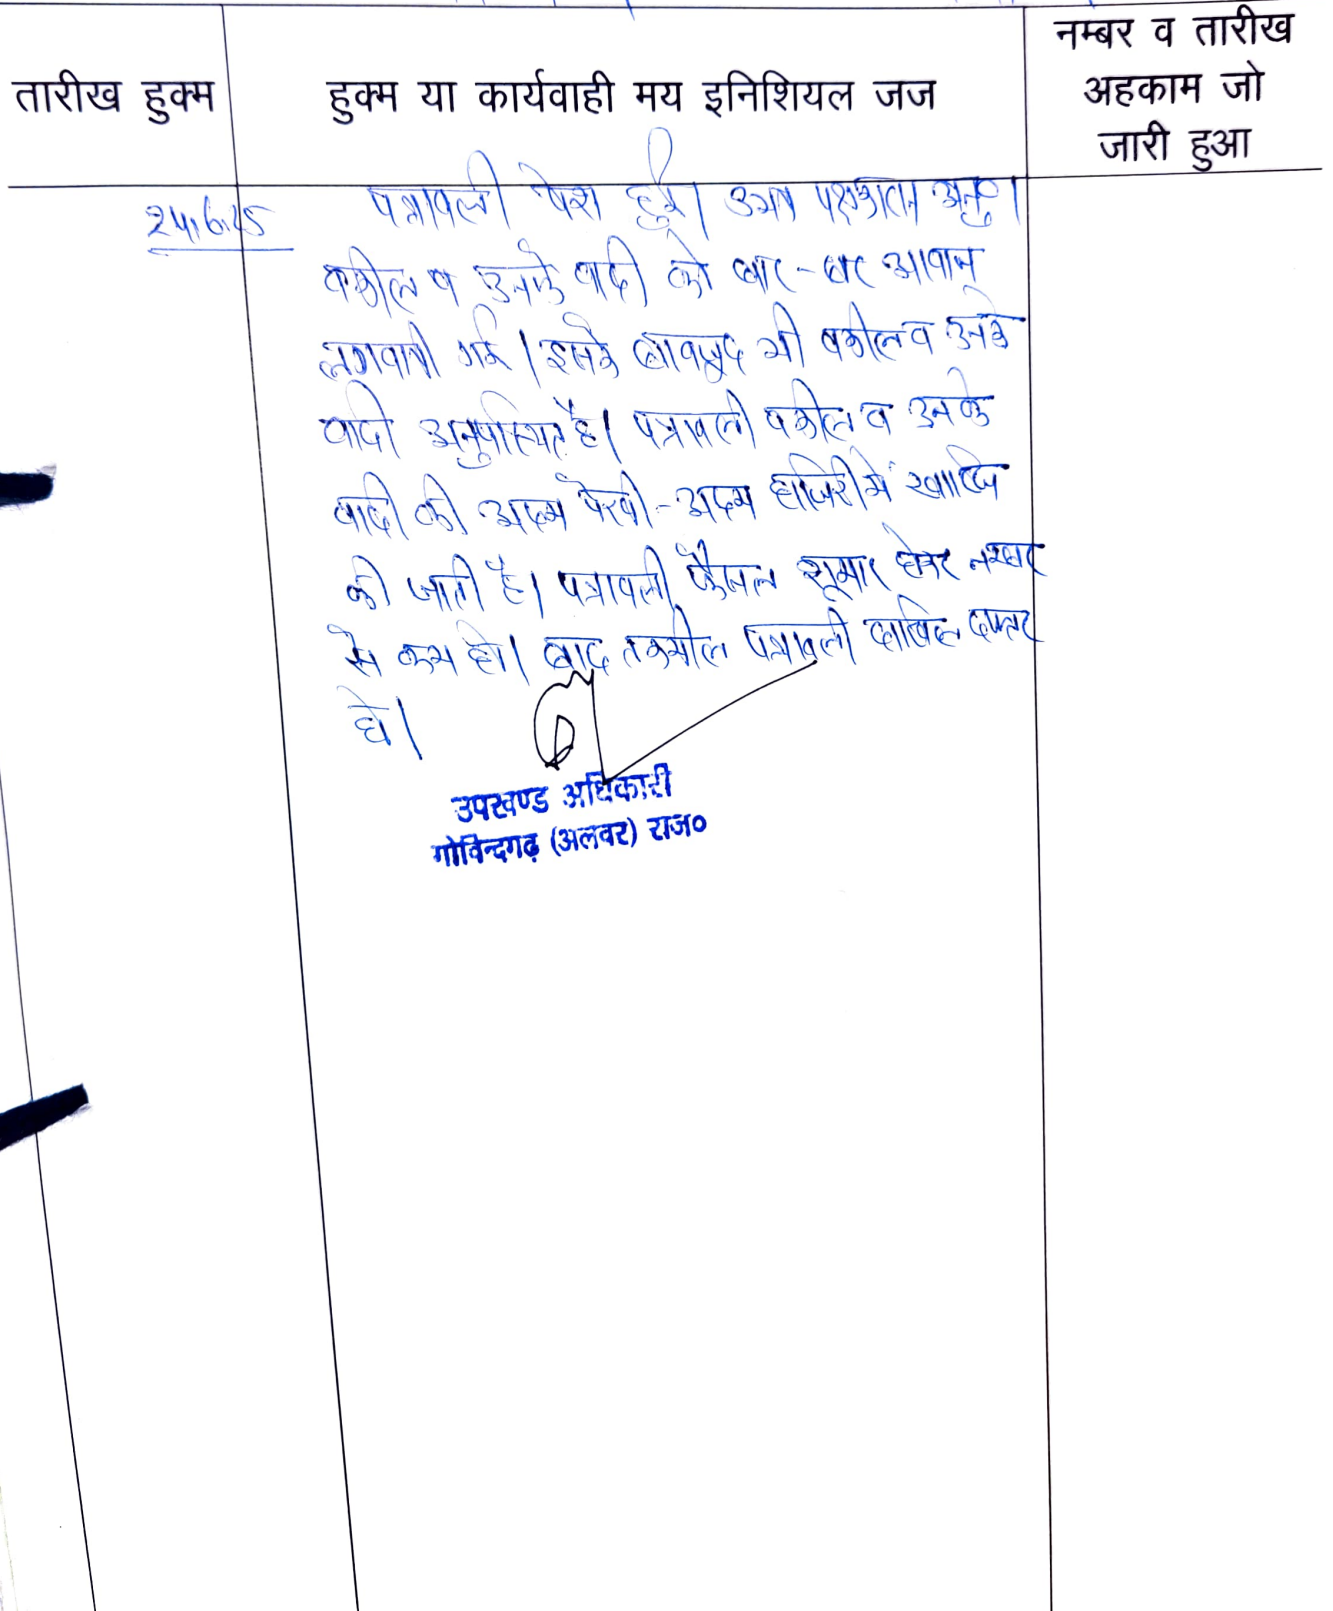 नम्बर व तारीख
तारीख हुक्म हुक्म या कार्यवाही मय इनिशियल जज अहकाम जो
जारी हुआ
24.6.25 पत्रावली पेश हुई। उभय पक्षकारान अनु०।
वकील व उनके वादी को बार-बार आवाज
लगवायी गई। इसके बावजूद भी वकील व उनके
वादी अनुपस्थित है। पत्रावली वकील व उनके
वादी की अदम पैरवी-अदम हाजिरी में खारिज
की जाती है। पत्रावली फैसल शुमार होकर नम्बर
से कम हो। बाद तकमील पत्रावली दाखिल दफ्तर
हो।
उपखण्ड अधिकारी
गोविन्दगढ़ (अलवर) राज०